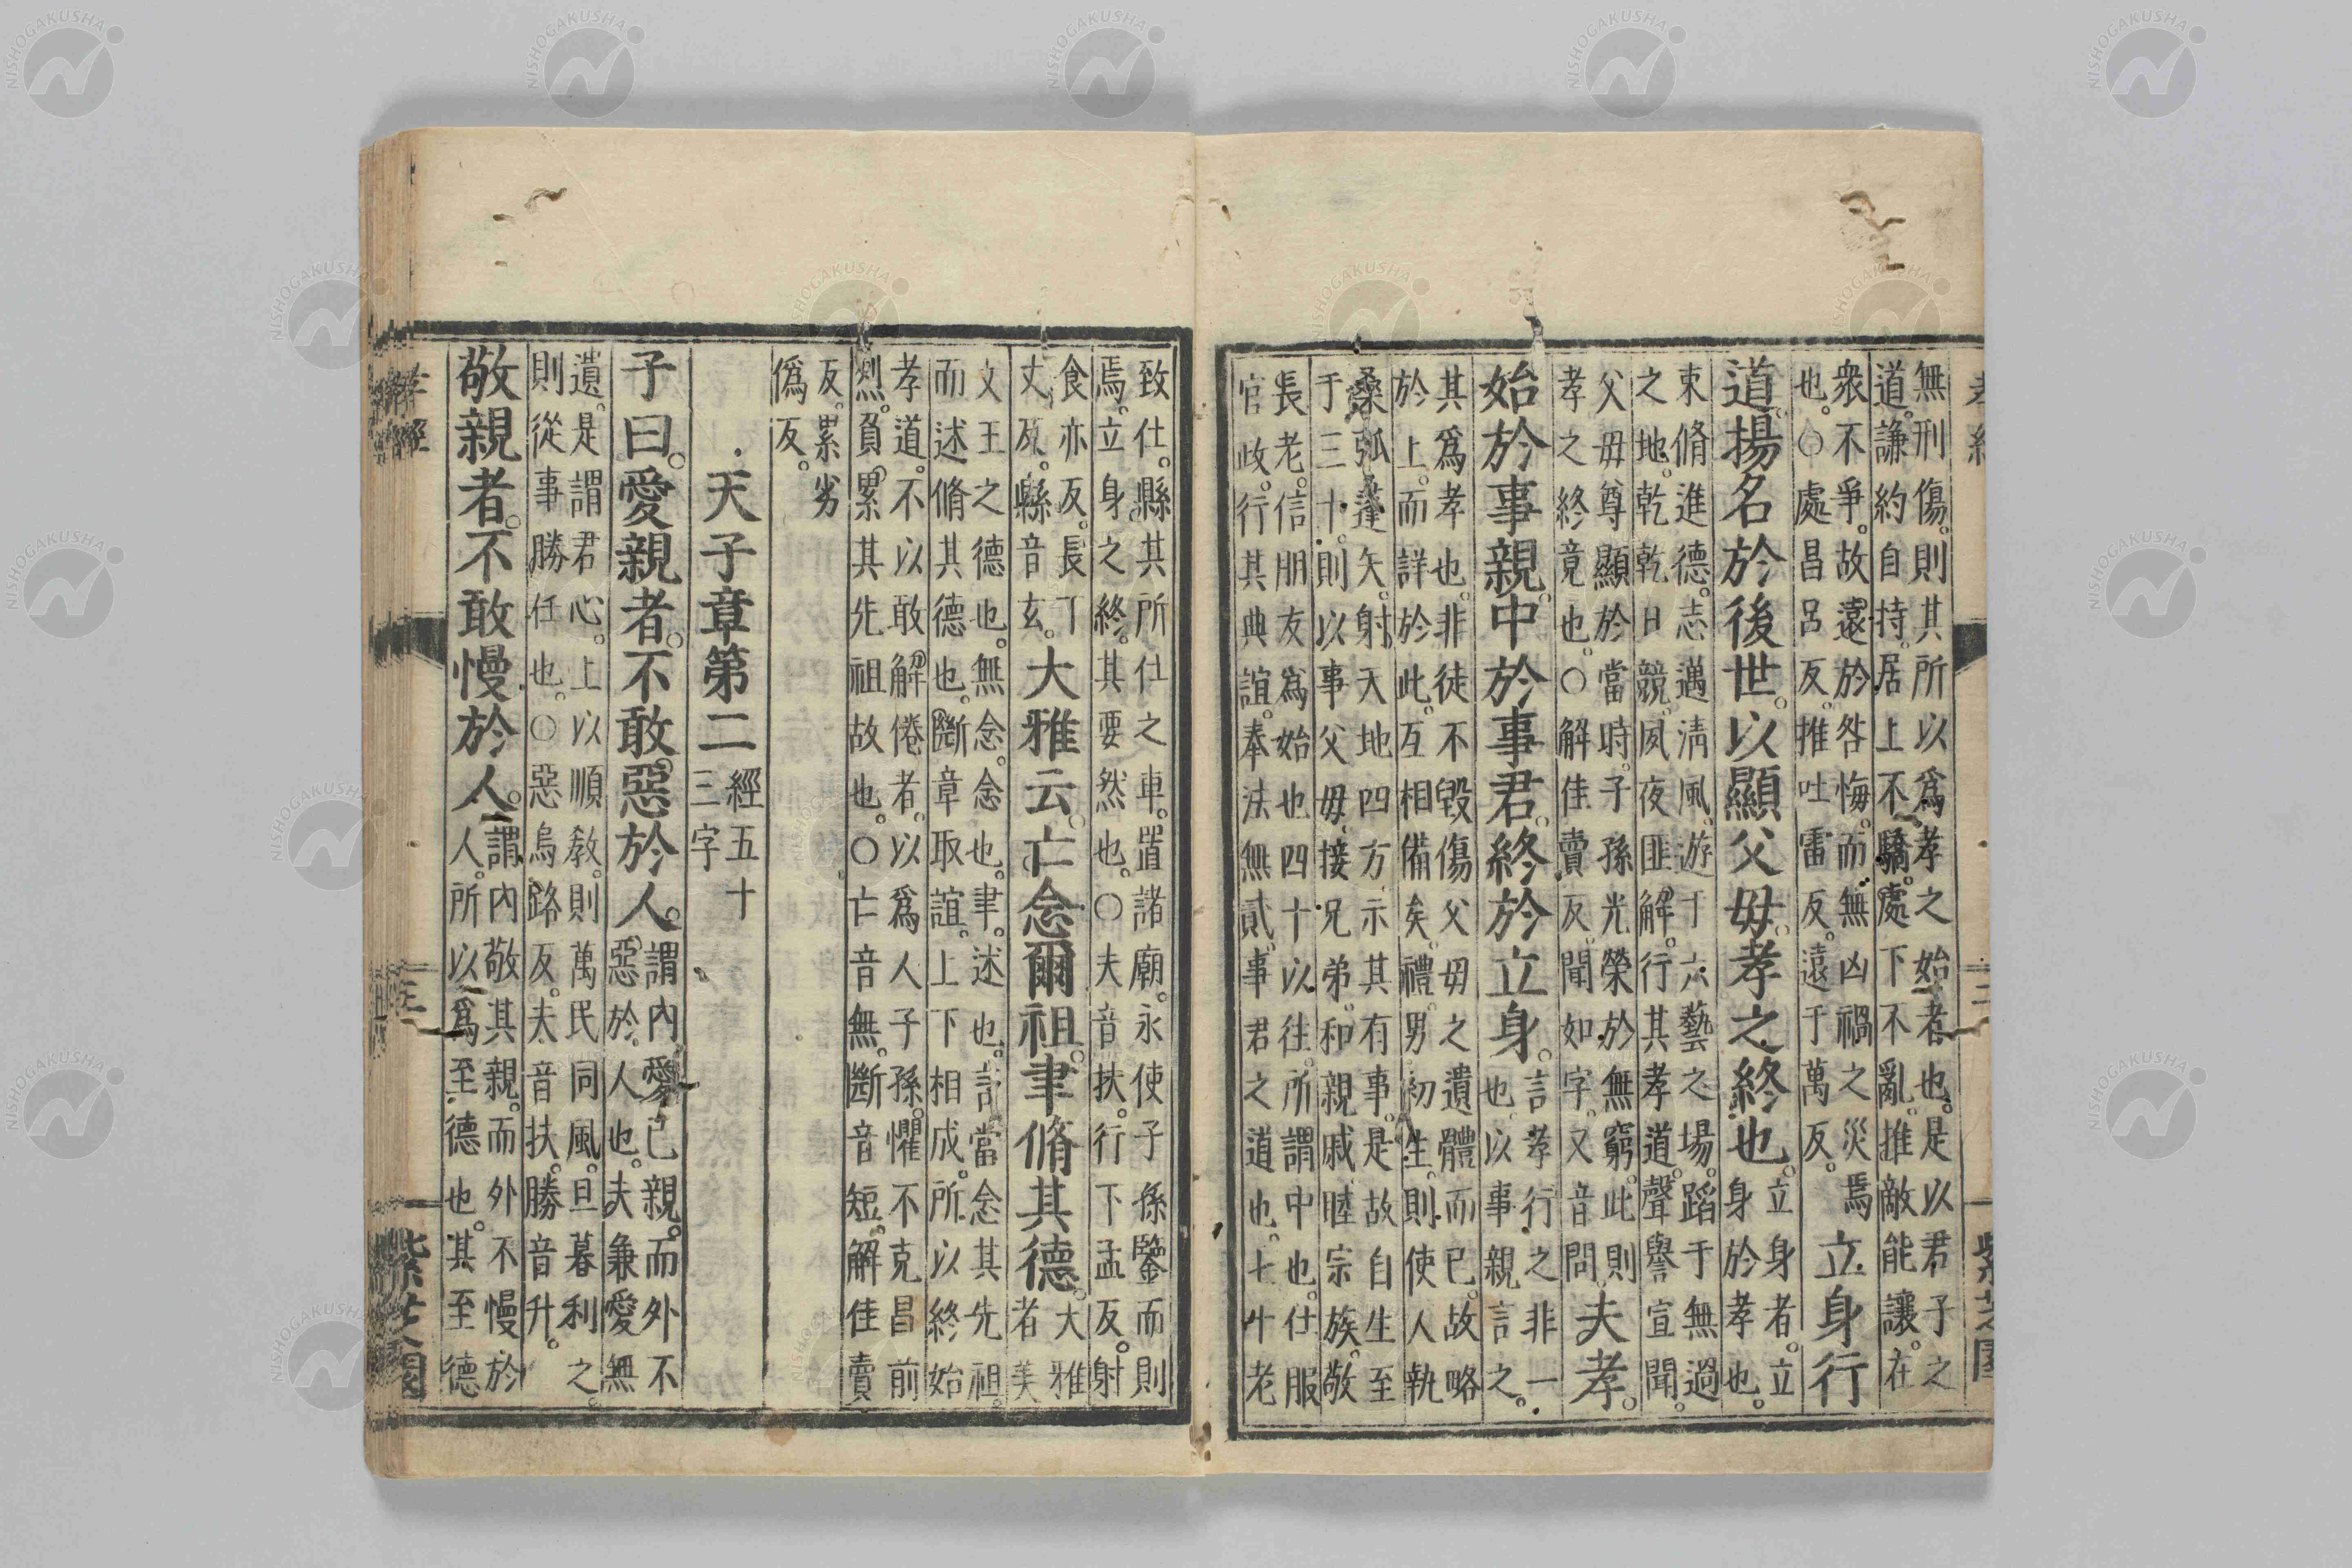 無刑傷。則其所以爲孝之始者也。是以君子之
道。謙約自持。居上不驕。處下不亂。推敵能讓。在
衆不爭。故遠於咎悔。而無凶禍之災焉
也。○處昌呂反。推吐雷反。遠于萬反。
立身行
道。揚名於後世。以顯父母。孝之終也。
立身者。立
身於孝也。
束脩進德。志邁淸風。游于六藝之場。蹈于無過
之地。乾乾日競。夙夜匪解。行其孝道。聲譽宣聞。
父母尊顯於當時。子孫光榮於無窮。此則
孝之終竟也。○解佳賣反。聞如字。又音問
夫孝。
始於事親。中於事君。終於立身。
言孝行之非一
也。以事親言之。
其爲孝也。非徒不毀傷父母之遺體而已。故略
於上。而詳於此。互相備矣。禮。男初生。則使人執
桑弧蓬矢。射天地四方。示其有事。是故自生至
于三十。則以事父母。接兄弟。和親戚。睦宗族。敬
長老。信朋友爲始也。四十以往。所謂中也。仕服
官政。行其典誼。奉法無貳。事君之道也。七十老
致仕。縣其所仕之車。置諸廟。永使子孫鑒而則
焉。立身之終。其要然也。○夫音扶。行下孟反。射
食亦反。長丁
丈反。縣音玄。
大雅云。亡念爾祖。聿脩其德。
大雅
者美
文王之德也。無念。念也。聿。述也。言當念其先祖。
而述脩其德也。斷章取誼。上下相成。所以終始
孝道。不以敢解倦者。以爲人子孫。懼不克昌前
烈。負累其先祖故也。○亡音無。斷音短。解佳賣
反。累劣
僞反。
天子章第二
經五十
三字
子曰。愛親者。不敢惡於人。
謂內愛己親。而外不
惡於人也。夫兼愛無
遺。是謂君心。上以順敎。則萬民同風。旦暮利之。
則從事勝任也。○惡烏路反。夫音扶。勝音升。
敬親者。不敢慢於人。
謂內敬其親。而外不慢於
人。所以爲至德也。其至德
孝經
三
紫芝園
NISHOGAKUSHA